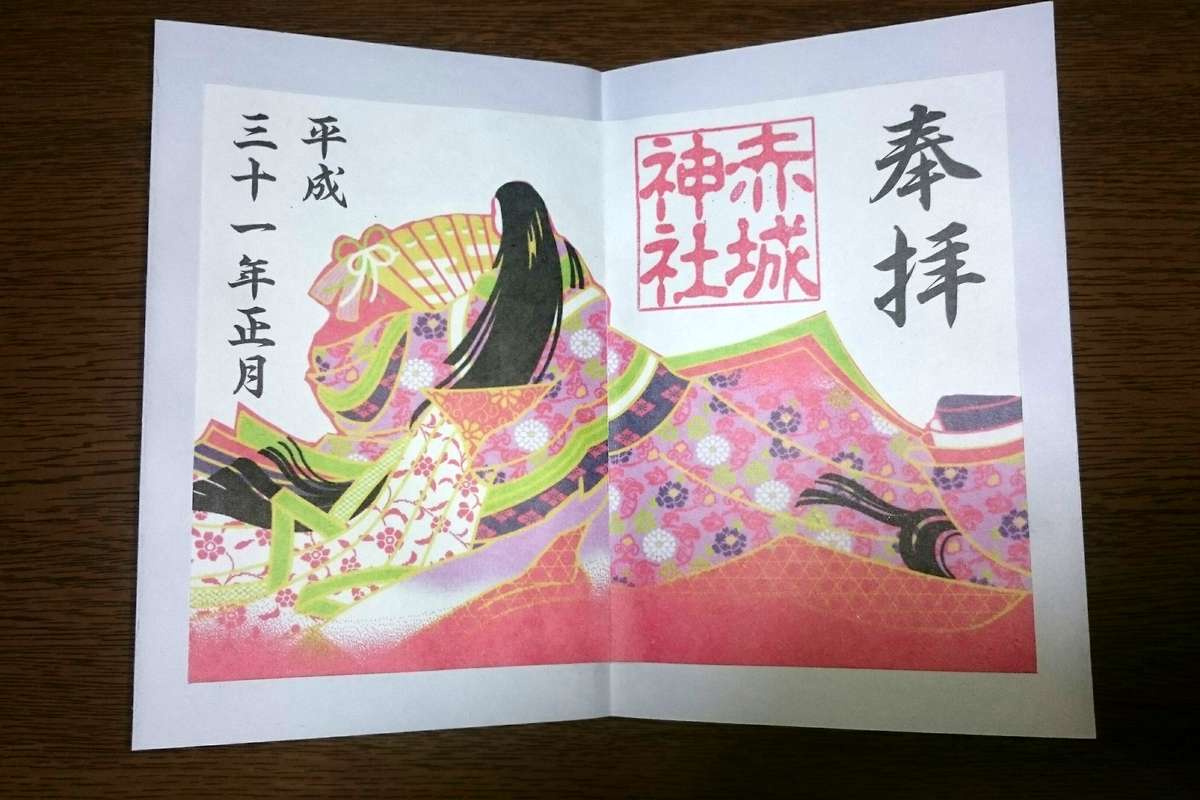 奉拝
赤城
神社
平成
三十一年正月